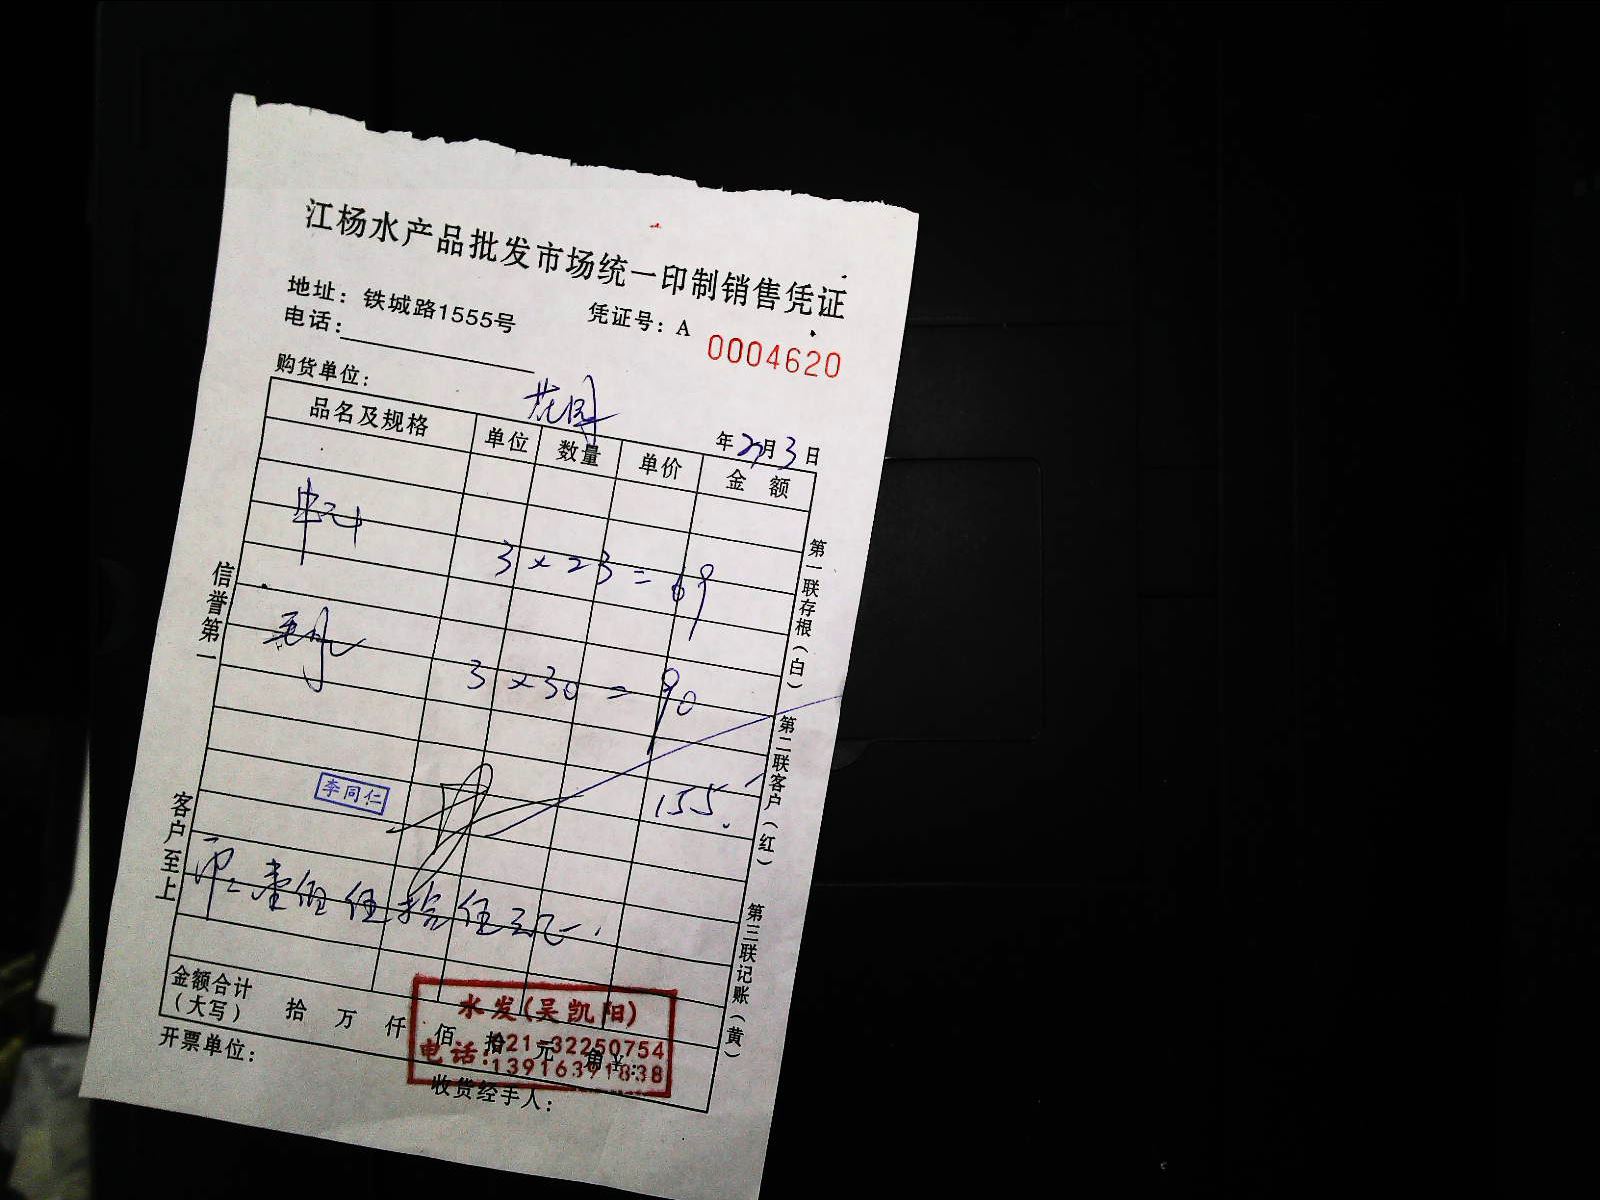 江杨水产品批发市场统一印制销售凭证
地址：铁城路1555号
凭证号：A 0004620
电话：
购货单位：
年 月3日
品名及规格 单位 数量 单价 金额
3×23=69
3×30=90
155.
李同仁
壹佰伍拾伍元
金额合计（大写） 拾 万 仟 佰 拾 元 角 ¥：
水发(吴凯阳)
电话：021-32250754
13916391838
开票单位：
收货经手人：
信誉第一
客户至上
第一联存根（白）
第二联客户（红）
第三联记账（黄）